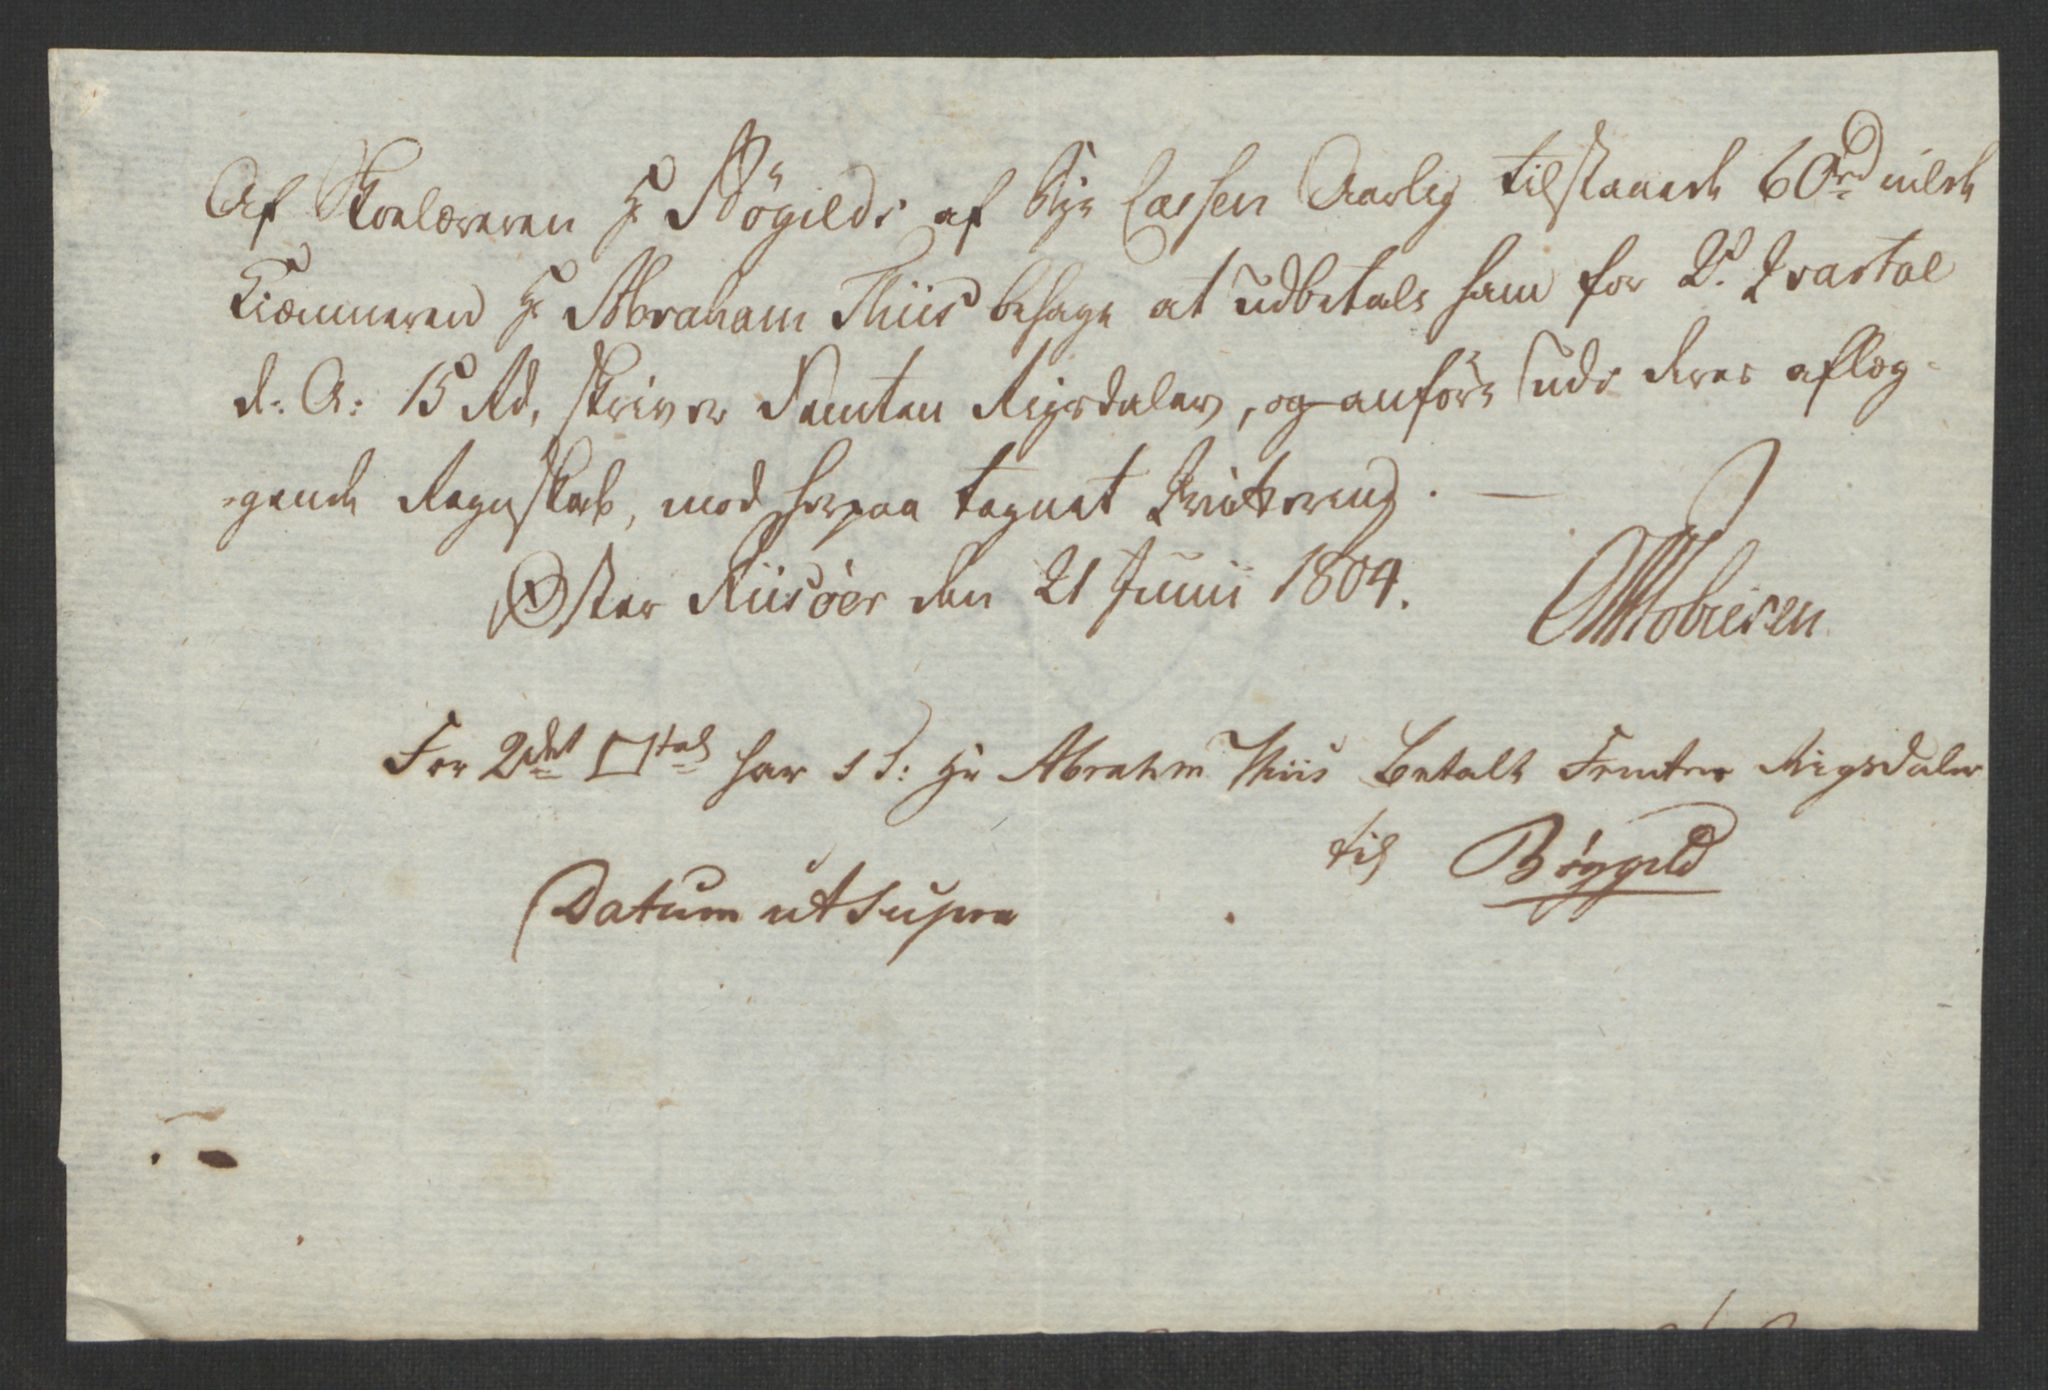 Af Skoelæreren Hr Bøgilds af Bye Cassen Aarlig tilstaaede 60 rd vilde
Kiæmneren Hr Abraham Thiis behage at udbetale ham for 2det Qvartal
d: A: 15 Rd, skriver Femten Rigsdaler, og anføre udi deres aflæg-
-gende Regnskab, mod herpaa tegnet Qvittering. —
Øster Riisöer den 21 Junii 1804.
For 2det □tal har S T: Hr Abrahm Thiis Betalt Femten Rigsdaler
til Bøggild
Datum ut supra